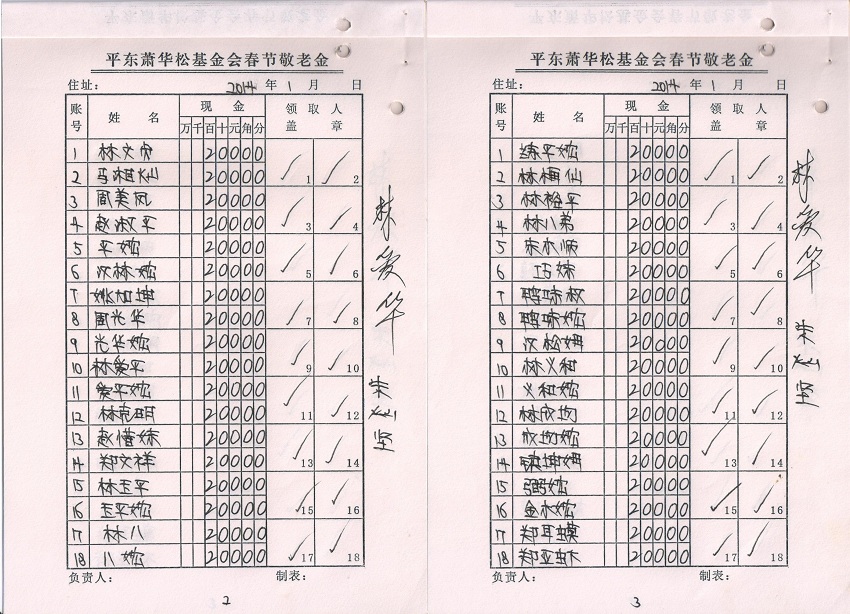 平东萧华松基金会春节敬老金
住址: 2014 年 1 月 日
账号 姓名 现金 领取人盖章
万 千 百 十 元 角 分
1 林文虎 20000 1
2 马湘灿 20000 2
3 周美凤 20000 3
4 赵淑平 20000 4
5 平嬏 20000 5
6 汉林嬏 20000 6
7 姚加坤 20000 7
8 周光华 20000 8
9 光华嬏 20000 9
10 林爱平 20000 10
11 爱平嬏 20000 11
12 林克明 20000 12
13 赵惜妹 20000 13
14 郑文祥 20000 14
15 林玉平 20000 15
16 玉平嬏 20000 16
17 林八 20000 17
18 八嬏 20000 18
林爱华
负责人: 制表:
2
平东萧华松基金会春节敬老金
住址: 2014 年 1 月 日
账号 姓名 现金 领取人盖章
万 千 百 十 元 角 分
1 平嬏 20000 1
2 林梅仙 20000 2
3 林裕平 20000 3
4 林八弟 20000 4
5 宋木顺 20000 5
6 巧妹 20000 6
7 20000 7
8 20000 8
9 汉松姆 20000 9
10 林义和 20000 10
11 义和嬏 20000 11
12 林欣均 20000 12
13 欣均嬏 20000 13
14 镇坤姆 20000 14
15 弼嬏 20000 15
16 金水嬏 20000 16
17 郑耳 20000 17
18 郑亚 20000 18
林爱华
负责人: 制表:
3